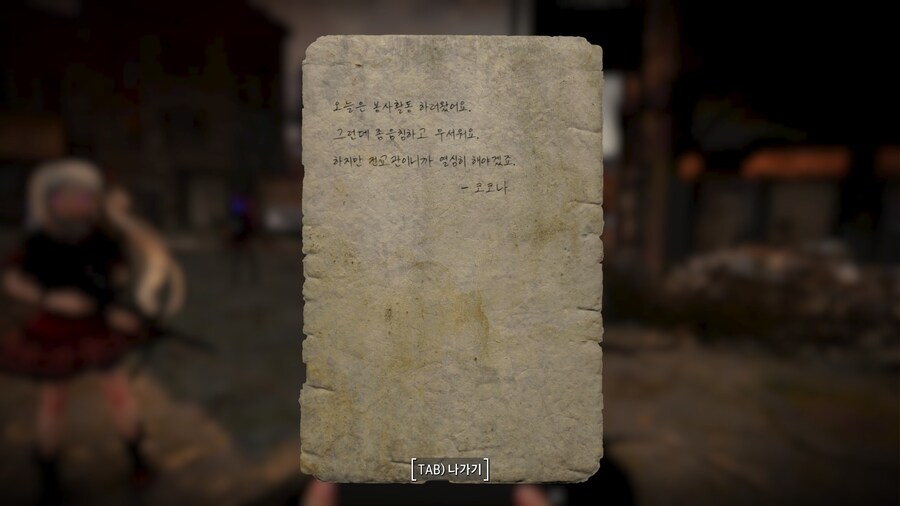 오늘은 봉사활동 하러왔어요.
그런데 음침하고 무서워요.
하지만 이니까 열심히 해야겠죠.
- 모모나
[TAB) 나가기]